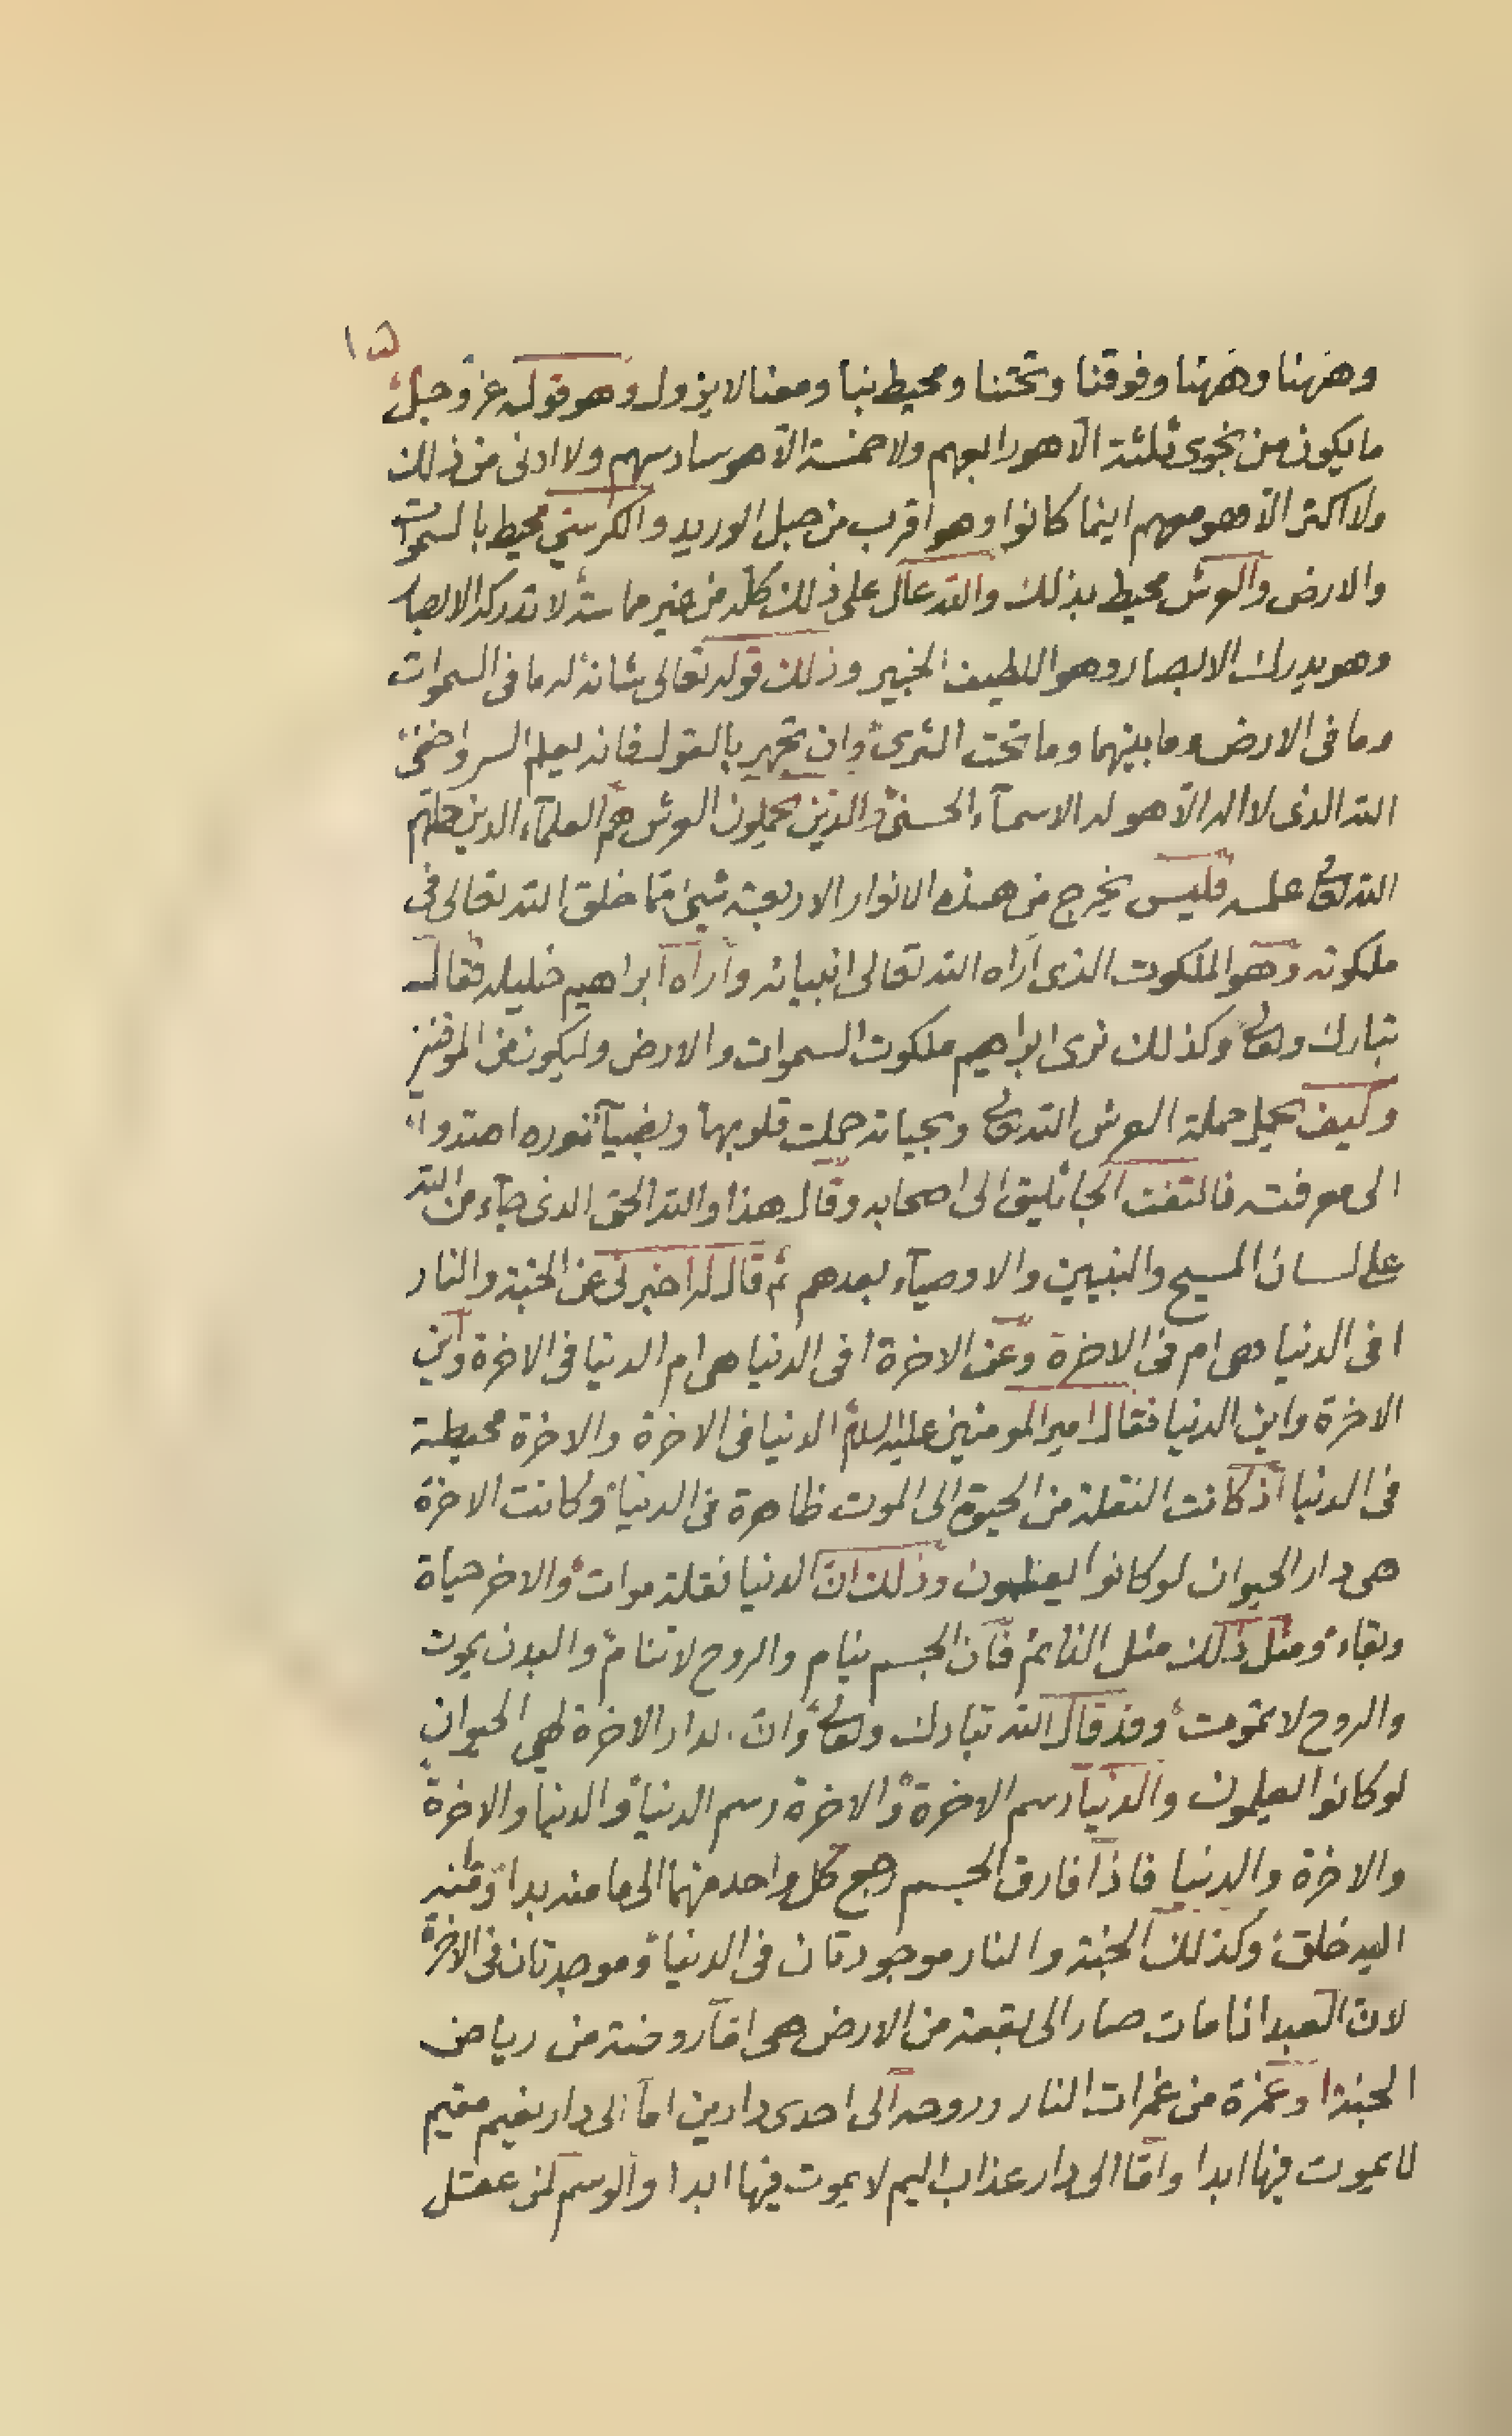 ١٥
وههنا وههنا وفوقنا وتحتنا ومحيط بنا ومعنا لا يزول وهو قوله عز وجل
ما يكون من نجوى ثلثة الا هو رابعهم ولا خمسة الا هو سادسهم ولا ادنى من ذلك
ولا اكثر الا هو معهم اينما كانوا وهو اقرب من حبل الوريد والكرسي محيط بالسموات
والارض والعرش محيط بذلك والله عال على ذلك كله من غير مماسة لا تدركه الابصار
وهو يدرك الابصار وهو اللطيف الخبير وذلك قوله تعالى شانه له ما في السموات
وما في الارض وما بينهما وما تحت الثرى وان تجهر بالقول فانه يعلم السر واخفى
الله الذى لا اله الا هو له الاسمآء الحسنى والذين يحملون العرش هم العلمآء الذين حملهم
الله تعالى علمه فليس يخرج من هذه الانوار الاربعة شيئ مما خلق الله تعالى في
ملكوته وهو الملكوت الذى اراه الله تعالى انبيائه وأراه ابراهيم خليله فقال
تبارك وتعالى وكذلك نرى ابراهيم ملكوت السموات والارض وليكون من الموقنين
وكيف يحمل حملة العرش الله تعالى وبحياته حملت قلوبها وبضيآء نوره اهتدوا
الى معرفته فالتفت الجاثليق الى اصحابه وقال هذا والله الحق الذى جآء من الله
على لسان المسيح والنبيين والاوصيآء بعدهم ثم قال له اخبرنى عن الجنة والنار
افى الدنيا هى ام فى الاخرة وعن الاخرة افى الدنيا هى ام الدنيا فى الاخرة واين
الاخرة واين الدنيا فقال امير المومنين عليه السلم الدنيا فى الاخرة والاخرة محيطة
فى الدنيا اذ كانت النقلة من الحيوة الى الموت ظاهرة فى الدنيا وكانت الاخرة
هى دار الحيوان لو كانوا يعلمون وذلك ان الدنيا نقلة موات والاخر حياة
وبقاء ومثل ذلك مثل النائم فان الجسم ينام والروح لا تنام والبدن يموت
والروح لا يموت وقد قال الله تبارك وتعالى وان الدار الاخرة لهي الحيوان
لو كانوا يعلمون والدنيا رسم الاخرة والاخرة رسم الدنيا والدنيا والاخرة
والاخرة والدنيا فاذا فارق الجسم رجع كل واحد منهما الى ما منه بدا ومنه
اليه خلق وكذلك الجنة والنار موجودتان فى الدنيا وموجدتان فى الاخرة
لان العبد اذا مات صار الى بقعة من الارض هى اما روضة من رياض
الجنة او غمزة من غمرات النار وروحه الى احدى دارين اما الى دار نعيم مقيم
لا يموت فيها ابدا واما الى دار عذاب اليم لا يموت فيها ابدا والوسم لمن عقل